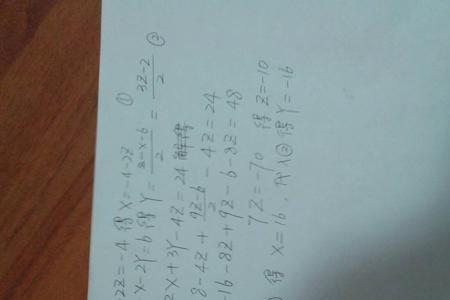 2Z=-4 得 X=-4-2Z ①
X-2Y=6 得 Y=\frac{Z-X-6}{2}=\frac{3Z-2}{2} ②
2X+3Y-4Z=24
8-4Z+\frac{9Z-6}{2}-4Z=24
-16-8Z+9Z-6-8Z=48
7Z=-70 得 Z=-10
得 X=16. 代入②得 Y=-16